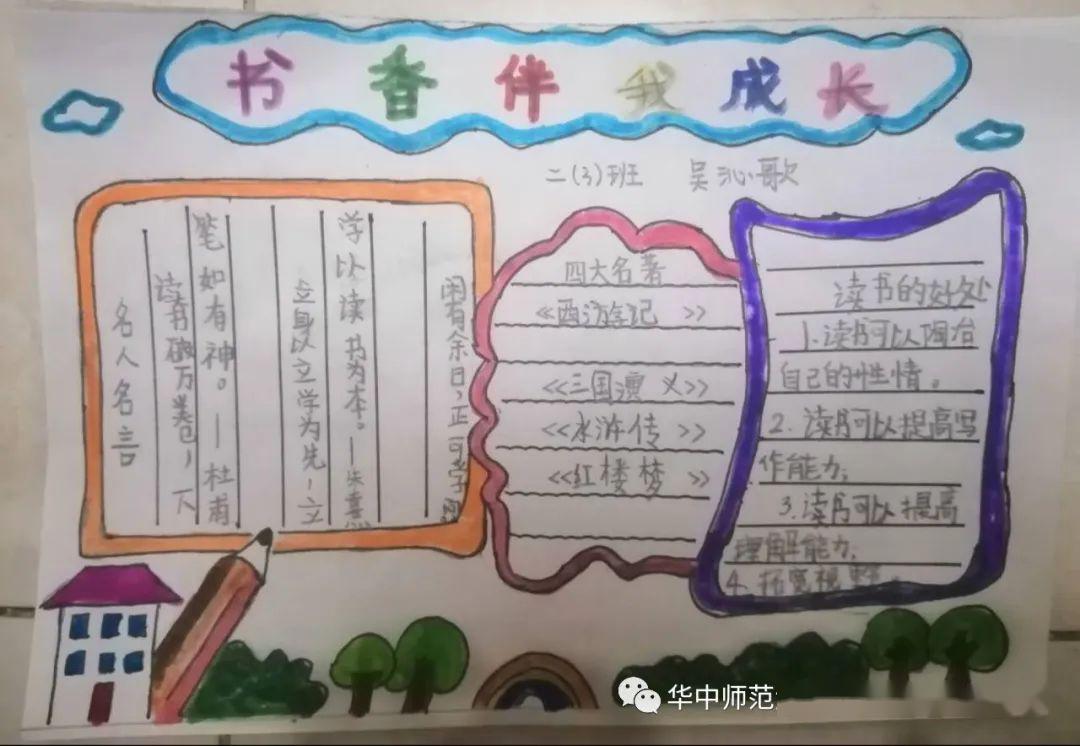 书香伴我成长
二(3)班 吴沁歌
名人名言
读书破万卷,下
笔如有神。—杜甫
立身以立学为先,立
学以读书为本。—朱熹
闲有余日,正可学
四大名著
《西游记 》
《三国演义》
《水浒传 》
《红楼梦 》
读书的好处
1.读书可以陶冶
自己的性情。
2.读书可以提高写
作能力;
3.读书可以提高
理解能力;
4.拓宽视野。
华中师范